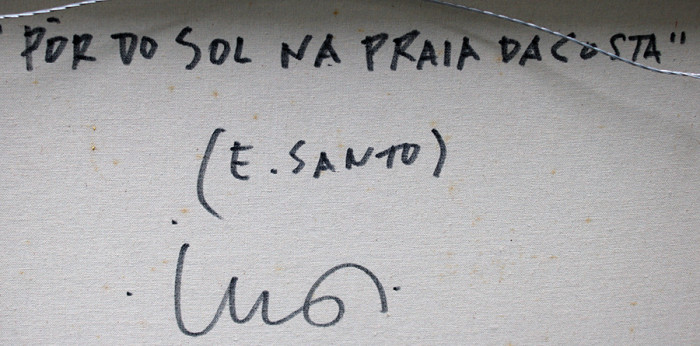 "PÔR DO SOL NA PRAIA DA COSTA"
(E. SANTO)